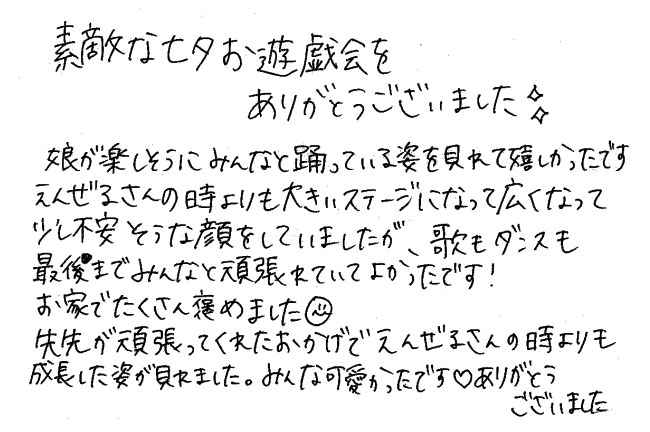 素敵な七夕お遊戯会を
ありがとうございました✧✧
娘が楽しそうにみんなと踊っている姿を見れて嬉しかったです
えんぜるさんの時よりも大きいステージになって広くなって
少し不安そうな顔をしていましたが、歌もダンスも
最後までみんなと頑張れていてよかったです！
お家でたくさん褒めました☺
先先が頑張ってくれたおかげでえんぜるさんの時よりも
成長した姿が見れました。みんな可愛かったです♡ありがとう
ございました